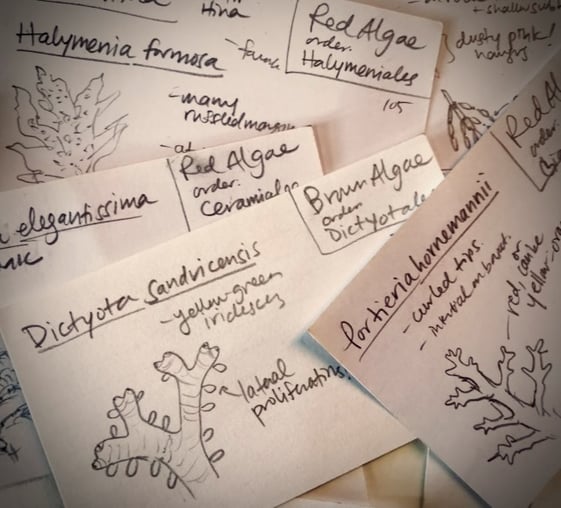 Tina
+ shallow sub
Halymenia formosa
Red Algae
order:
Halymeniales
105
- many
ruffled margins
- at
dusty pink!
elegantissima
Red Algae
order:
Ceramiales
Brown Algae
order
Dictyotales
Red Al
order:
Dictyota Sandvicensis
- yellow-green
iridesces
- lateral
proliferations.
Portieria hornemannii
- curled tips.
- red, can be
or
yellow-ora